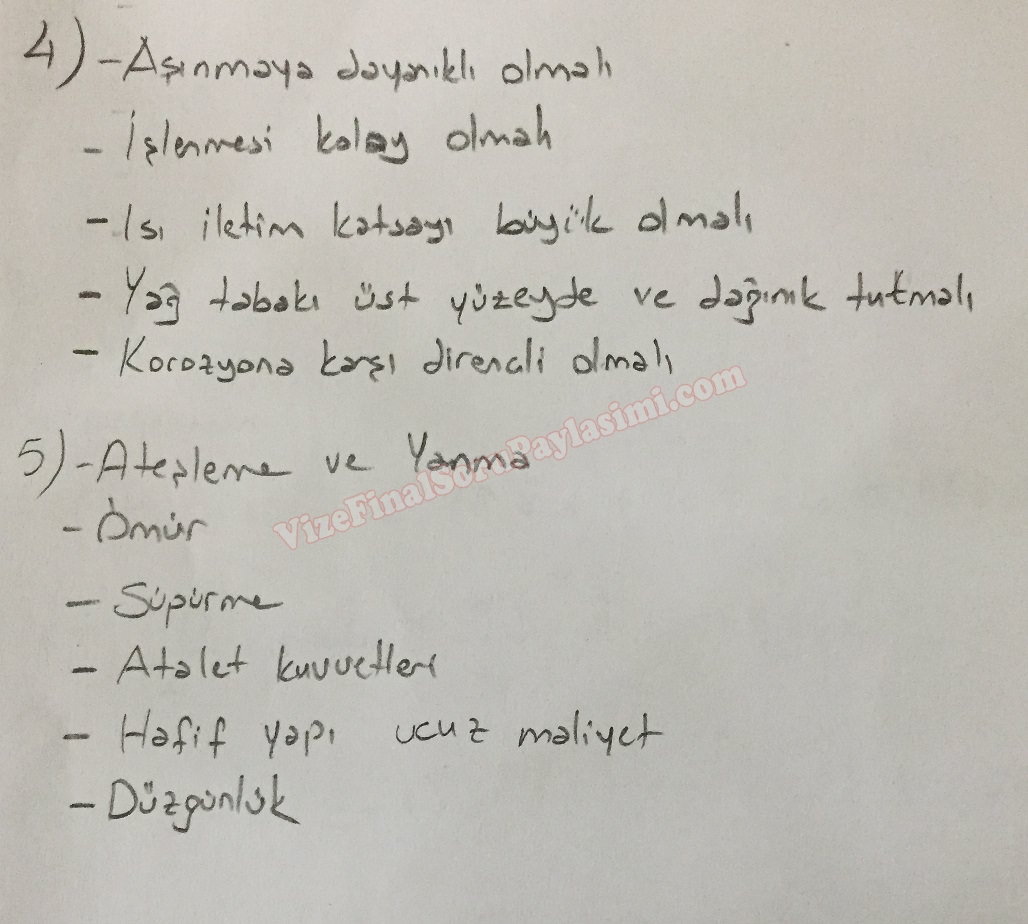 4) - Aşınmaya dayanıklı olmalı
- İşlenmesi kolay olmalı
- Isı iletim katsayı büyük olmalı
- Yağ tabakı üst yüzeyde ve dağınık tutmalı
- Korozyona karşı direncli olmalı
VizeFinalSoruPaylasimi.com
5) - Ateşleme ve Yanma
- Ömür
- Süpürme
- Atalet kuvvetleri
- Hafif yapı ucuz maliyet
- Düzgünlük